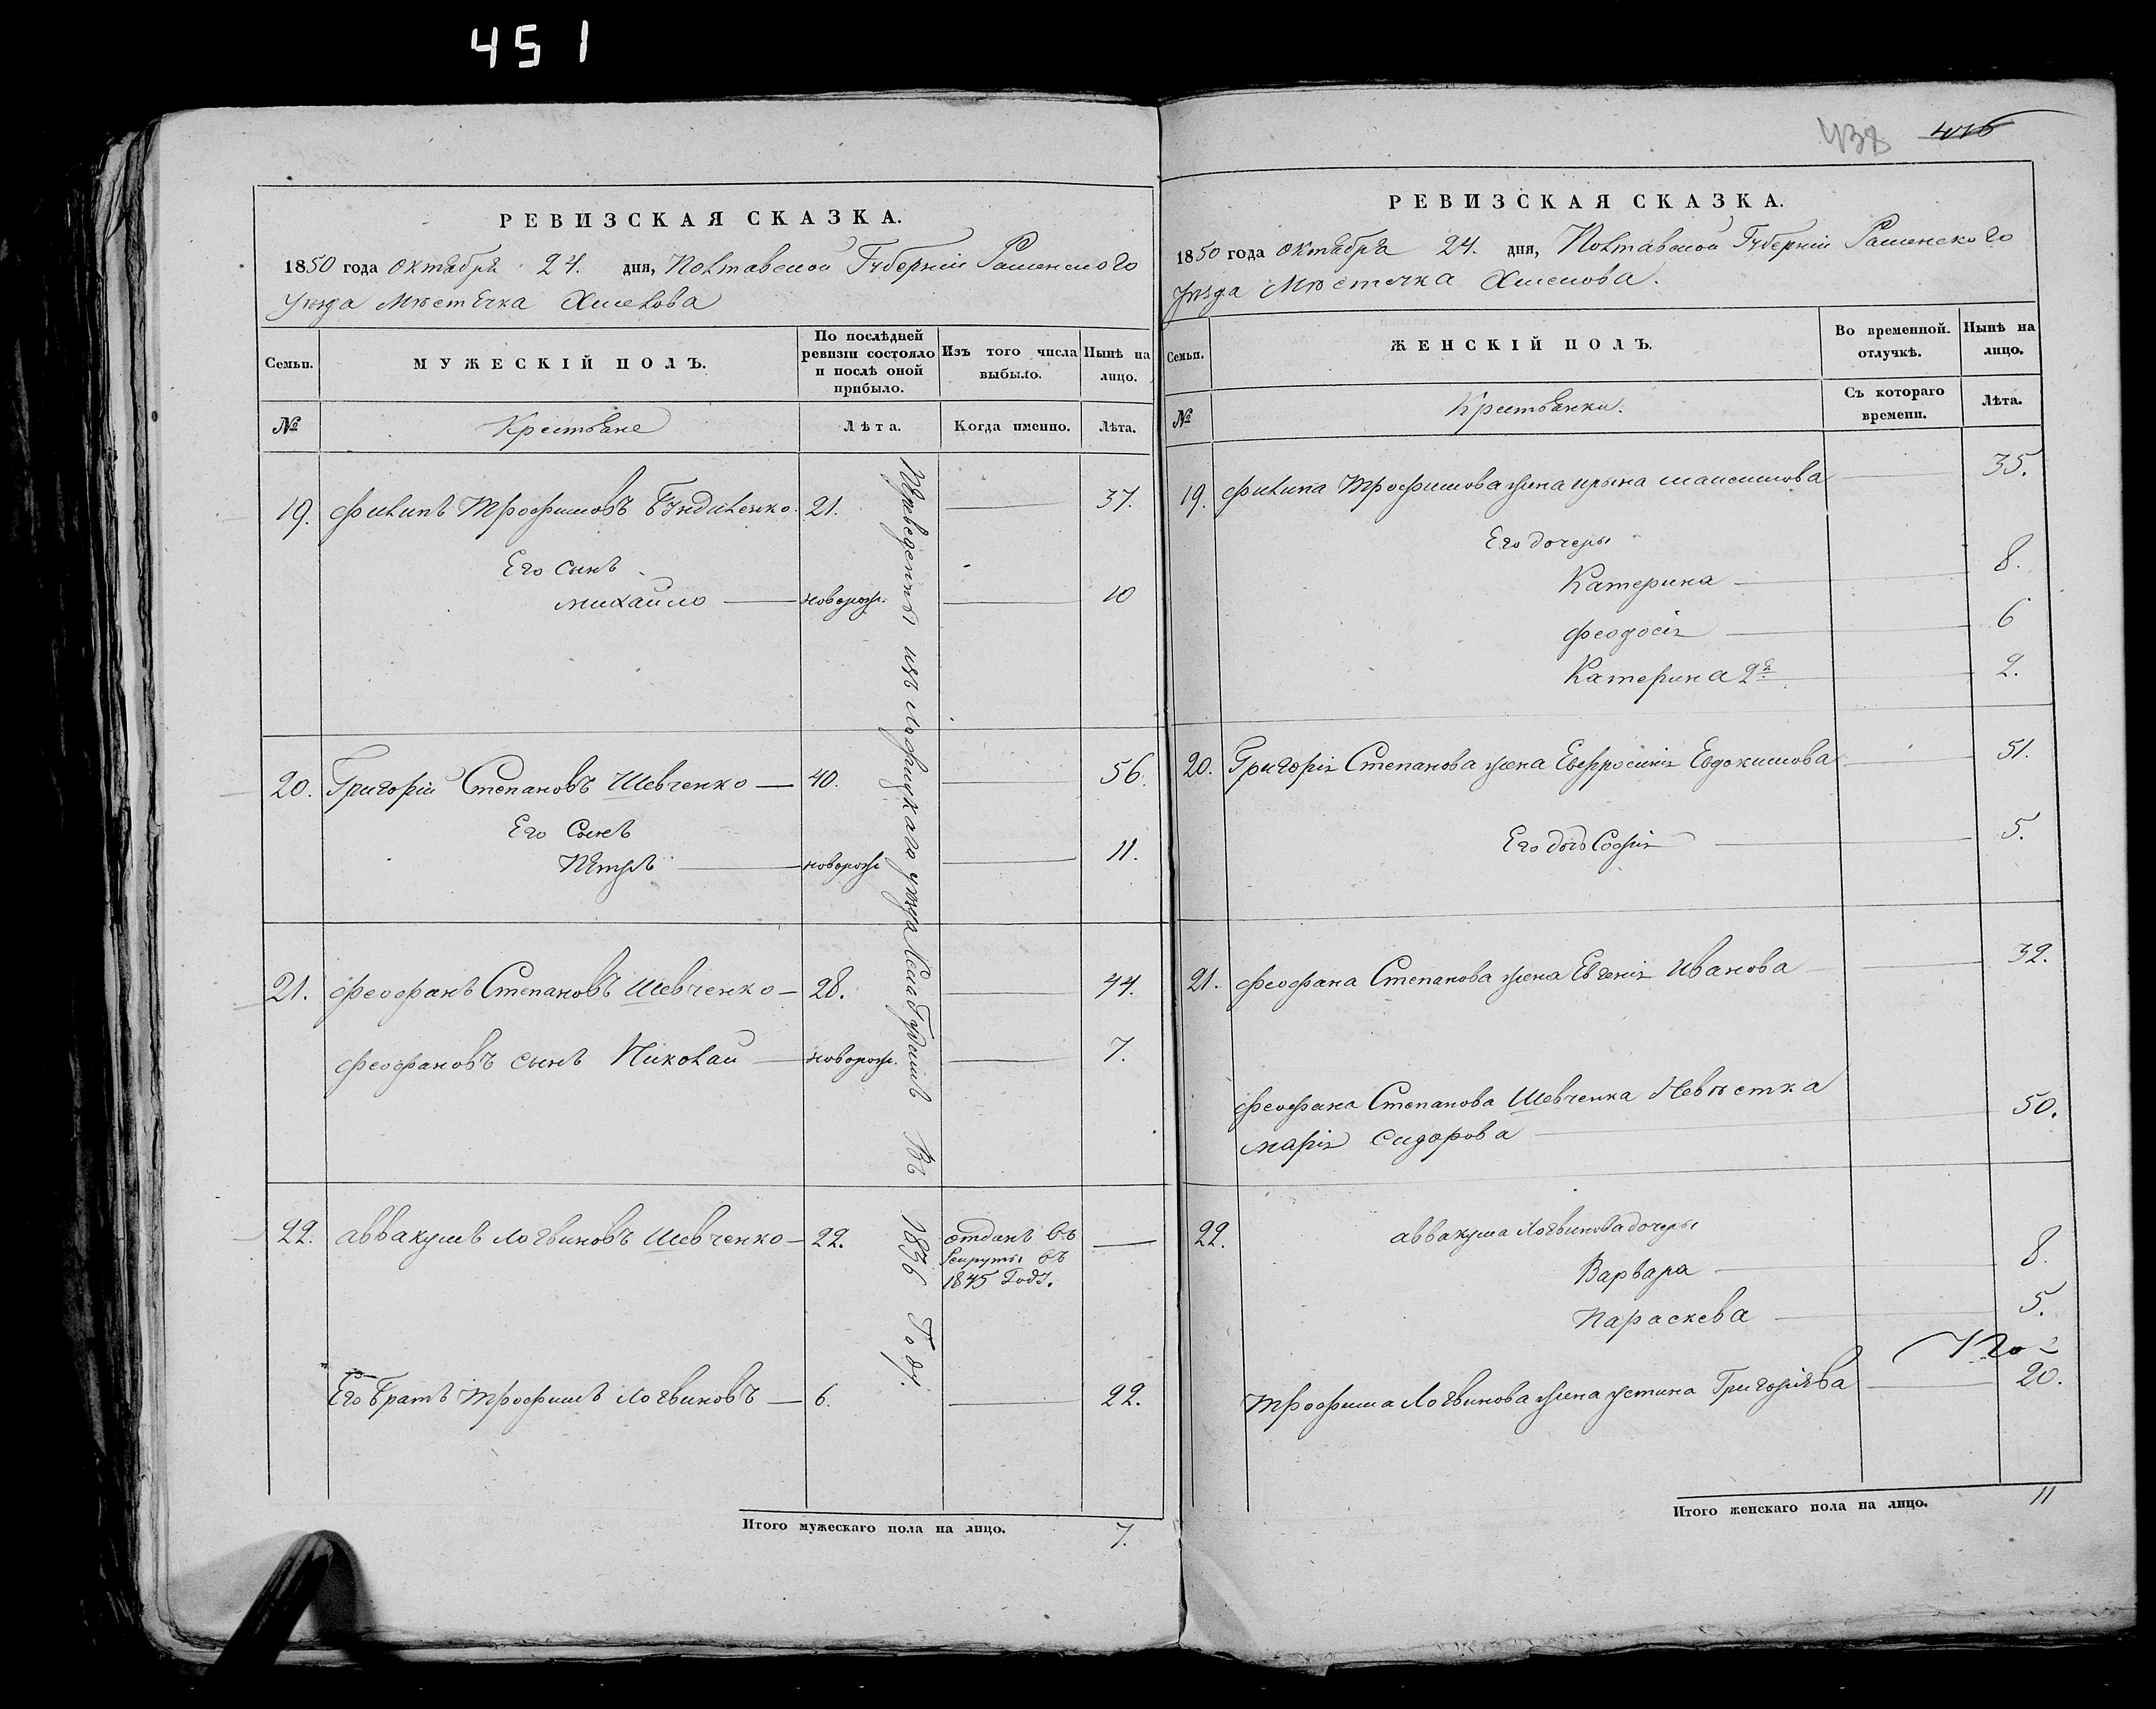 451
РЕВИЗСКАЯ СКАЗКА.
1850 года Октября 24. дня, Полтавской Губерніи Роменского
Уѣзда Мѣстечка Хмелова
Семьи.
МУЖЕСКІЙ ПОЛЪ.
По послѣдней ревизіи состояло и послѣ оной прибыло.
Изъ того числа выбыло.
Нынѣ на лицо.
№
Крестьяне
Лѣта.
Когда именно.
Лѣта.
19. Филипъ Трофимовъ 21. 37.
Его Сынъ
Михайло новорож. 10
20. Григорій Степановъ Шевченко 40. 56.
Его Сынъ
Петръ новорож 11.
21. Феофанъ Степановъ Шевченко 28. 44.
Феофановъ сынъ Николай новорож. 7.
22. Аввакумъ Логвиновъ Шевченко 22. отданъ въ
рекруты въ
1845 Году.
Его Братъ Трофимъ Логвиновъ 6. 22.
Переведенны изъ Лохвицкаго уѣзда Села Въ 1836 Году.
Итого мужескаго пола на лицо. 7.
438 416
РЕВИЗСКАЯ СКАЗКА.
1850 года Октября 24. дня, Полтавской Губерніи Роменского
Уѣзда Мѣстечка Хмелова.
Семьи.
ЖЕНСКІЙ ПОЛЪ.
Во временной. отлучкѣ.
Нынѣ на лицо.
№
Крестьянки.
Съ котораго времени.
Лѣта.
19. Филипа Трофимова жена Ирына Максимова 35.
Его дочеры
Катерина 8.
Феодосія 6
Катерина 2я 2.
20. Григорія Степанова жена Евфросинія Евдокимова 51.
Его дочь Софія 5.
21. Феофана Степанова жена Евгенія Иванова 32.
Феофана Степанова Шевченка Невѣстка
Марія Сидорова 50.
22. Аввакума Логвинова дочеры
Варвара 8.
Параскева 5.
Трофима Логвинова жена Устина Григоріева 20.
Итого женскаго пола на лицо. 11